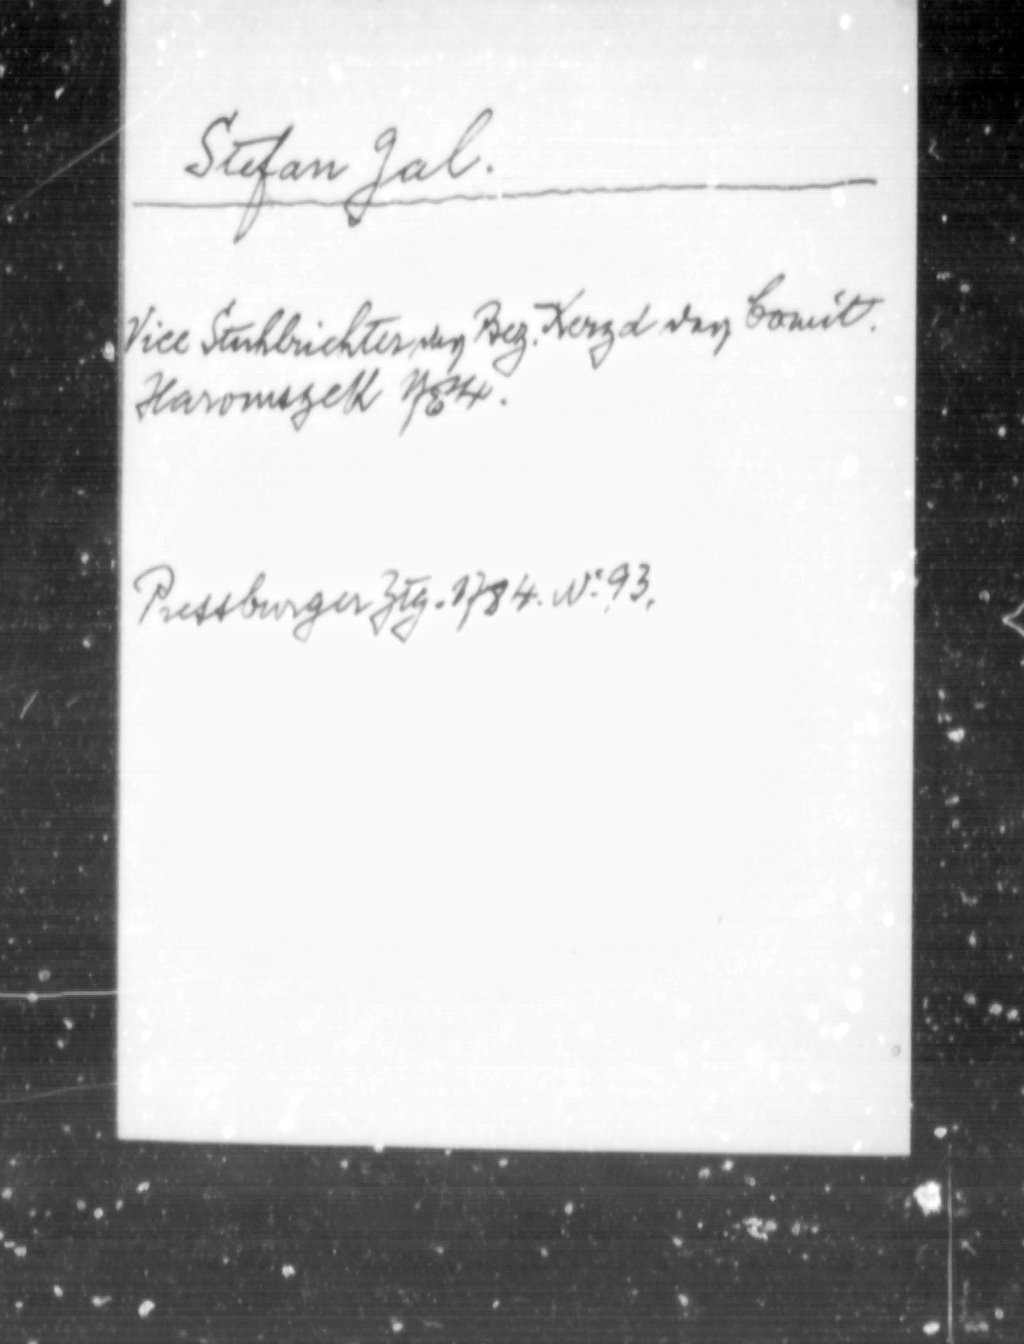 Stefan Gal.
Vice Stuhlrichter des Bez. Kerzd des Comit.
Haromszek 1784.
Pressburger Ztg. 1784. No. 93.